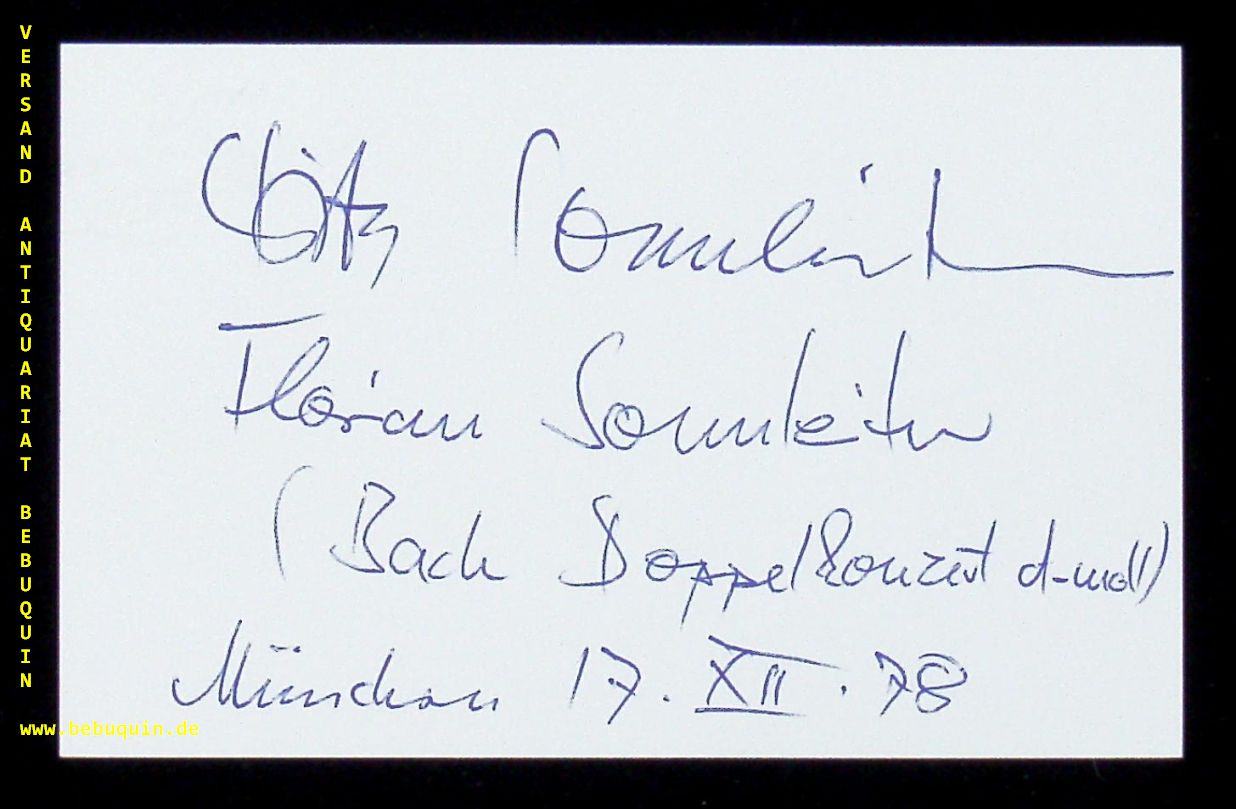 VERSAND ANTIQUARIAT BEBUQUIN
Florian Sonnleitner
(Bach Doppelkonzert d-moll)
München 17. XII. 78
www.bebuquin.de